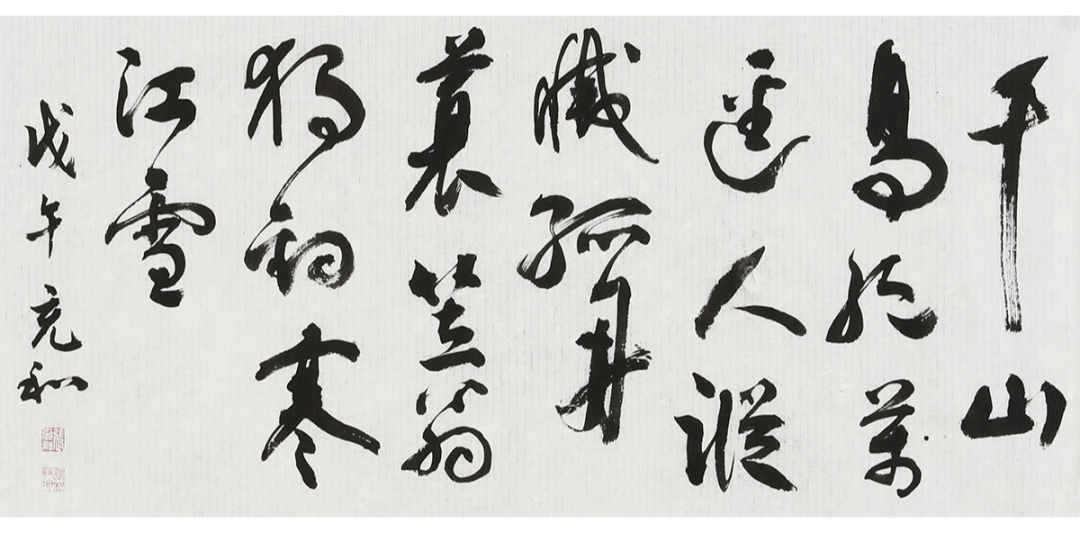 千山
鳥絕萬
逕人蹤
滅孤舟
蓑笠翁
獨釣寒
江雪
戊午 充和